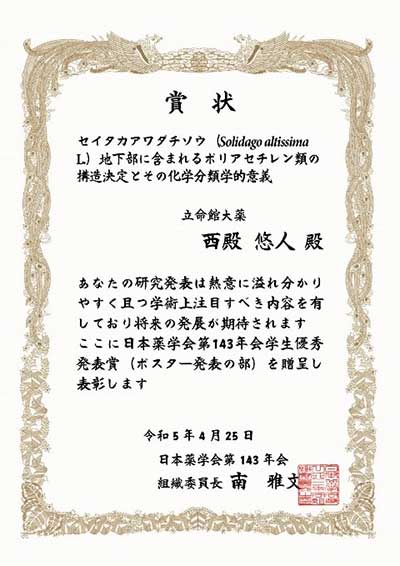 賞状
セイタカアワダチソウ（Solidago altissima
L）地下部に含まれるポリアセチレン類の
構造決定とその化学分類学的意義
立命館大薬
西殿 悠人 殿
あなたの研究発表は熱意に溢れ分かり
やすく且つ学術上注目すべき内容を有
しており将来の発展が期待されます
ここに日本薬学会第143年会学生優秀
発表賞（ポスター発表の部）を贈呈し
表彰します
令和5年4月25日
日本薬学会第143年会
組織委員長 南 雅文